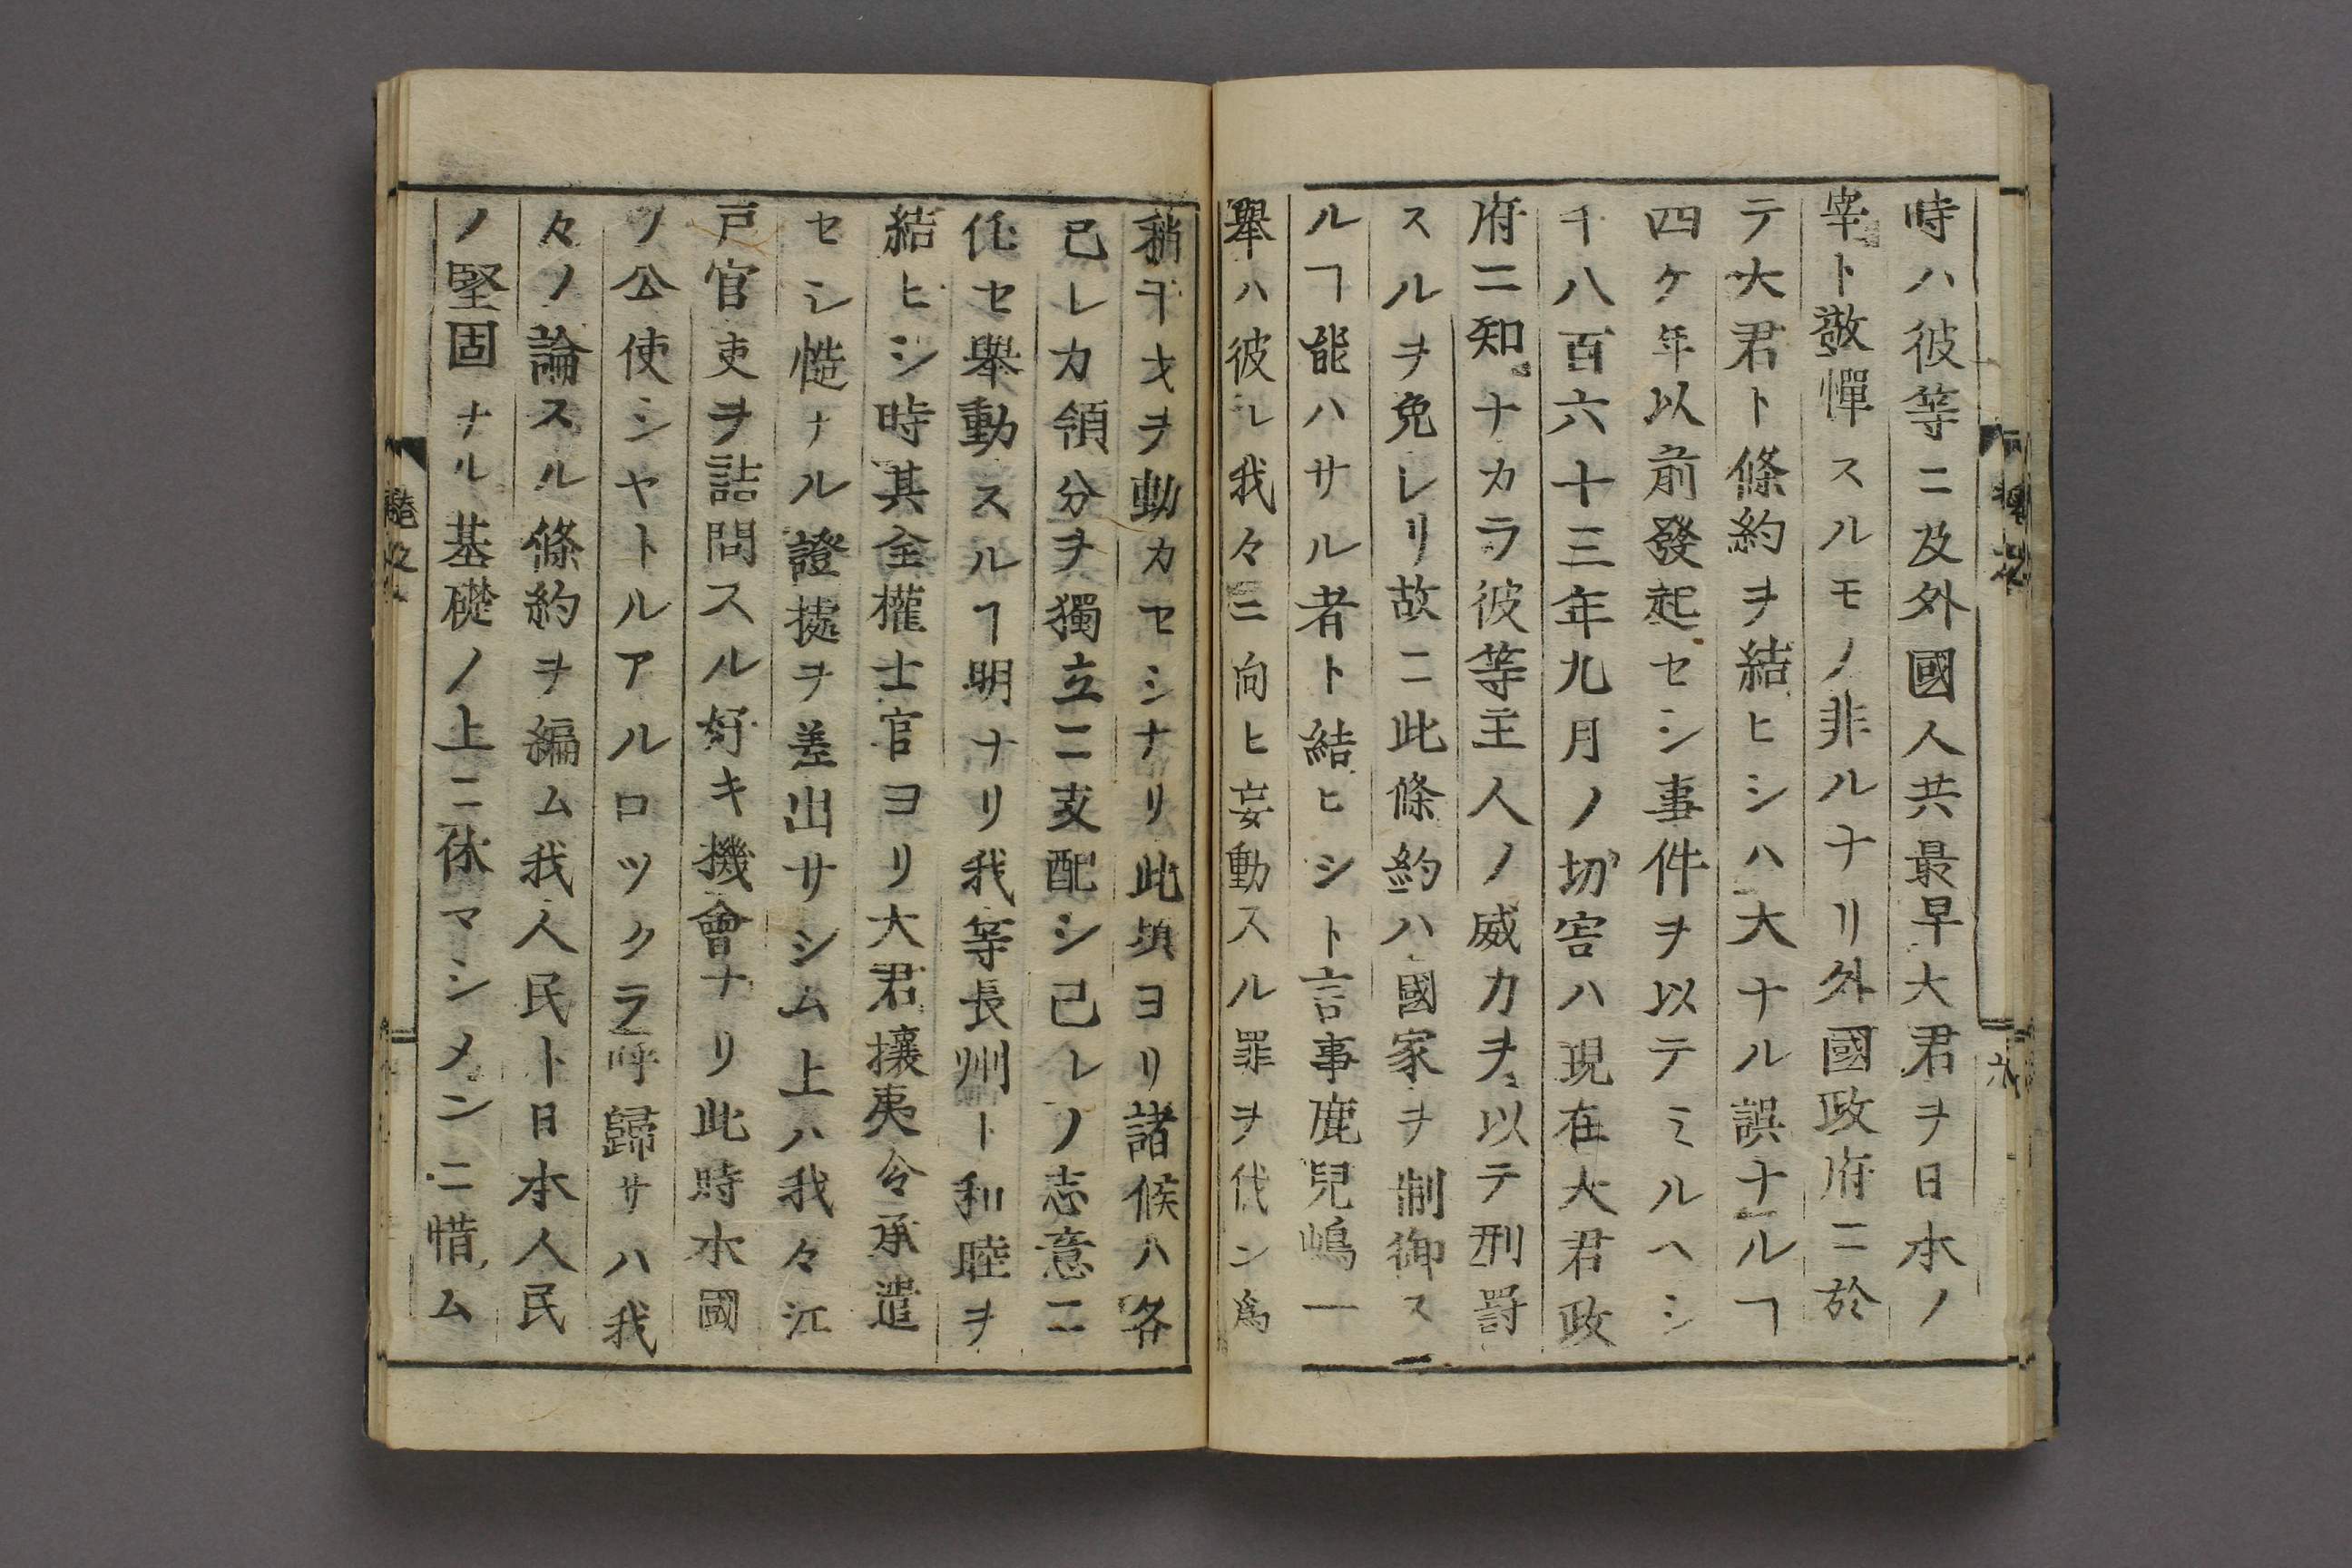 時ハ彼等ニ及外國人共最早大君ヲ日本ノ
宰ト敬憚スルモノ非ルナリ外國政府ニ於
テ大君ト條約ヲ結ヒシハ大ナル誤ナルヿ
四ケ年以前發起セシ事件ヲ以テミルヘシ
千八百六十三年九月ノ切害ハ現在大君政
府ニ知ナカラ彼等主人ノ威力ヲ以テ刑罸
スルヲ免レリ故ニ此條約ハ國家ヲ制御ス
ルヿ能ハサル者ト結ヒシト言事鹿兒嶋一
舉ハ彼レ我々ニ向ヒ妄動スル罪ヲ伐ン爲
稍干戈ヲ動カセシナリ此頃ヨリ諸候ハ各
己レカ領分ヲ獨立ニ支配シ己レノ志意ニ
任セ舉動スルヿ明ナリ我等長州ト和睦ヲ
結ヒシ時其全權士官ヨリ大君攘夷令承遣
セシ慥ナル證據ヲ差出サシム上ハ我々江
戸官吏ヲ詰問スル好キ機會ナリ此時本國
ノ公使シヤトルアルロツクラ呼歸サハ我
々ノ論スル條約ヲ編ム我人民ト日本人民
ノ堅固ナル基礎ノ上ニ休マシメンニ惜ム